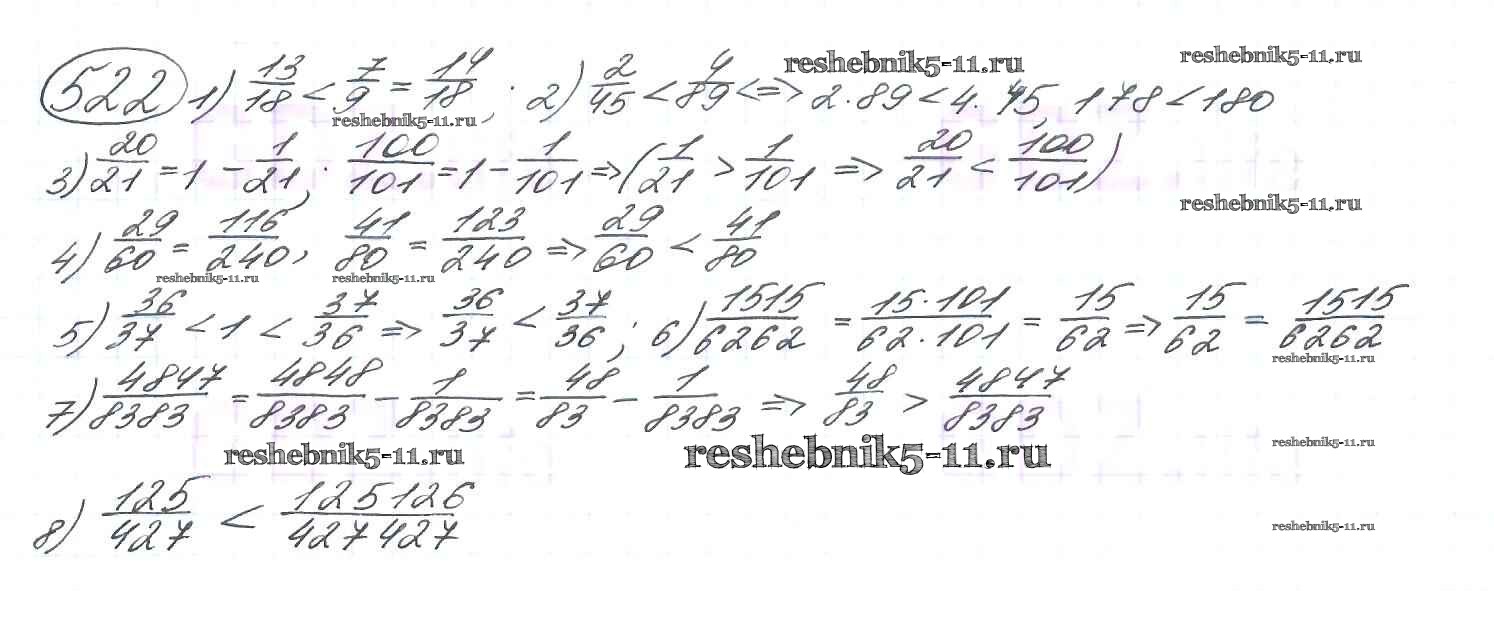 522 1) 13/18 < 7/9 = 14/18; 2) 2/45 < 4/89 <=> 2·89 < 4·45, 178 < 180
reshebnik5-11.ru reshebnik5-11.ru reshebnik5-11.ru
3) 20/21 = 1 - 1/21; 100/101 = 1 - 1/101 => (1/21 > 1/101 => 20/21 < 100/101)
reshebnik5-11.ru
4) 29/60 = 116/240, 41/80 = 123/240 => 29/60 < 41/80
reshebnik5-11.ru reshebnik5-11.ru
5) 36/37 < 1 < 37/36 => 36/37 < 37/36; 6) 1515/6262 = 15·101/62·101 = 15/62 => 15/62 = 1515/6262
reshebnik5-11.ru
7) 4847/8383 = 4848/8383 - 1/8383 = 48/83 - 1/8383 => 48/83 > 4847/8383
reshebnik5-11.ru reshebnik5-11.ru reshebnik5-11.ru
8) 125/427 < 125126/427427
reshebnik5-11.ru